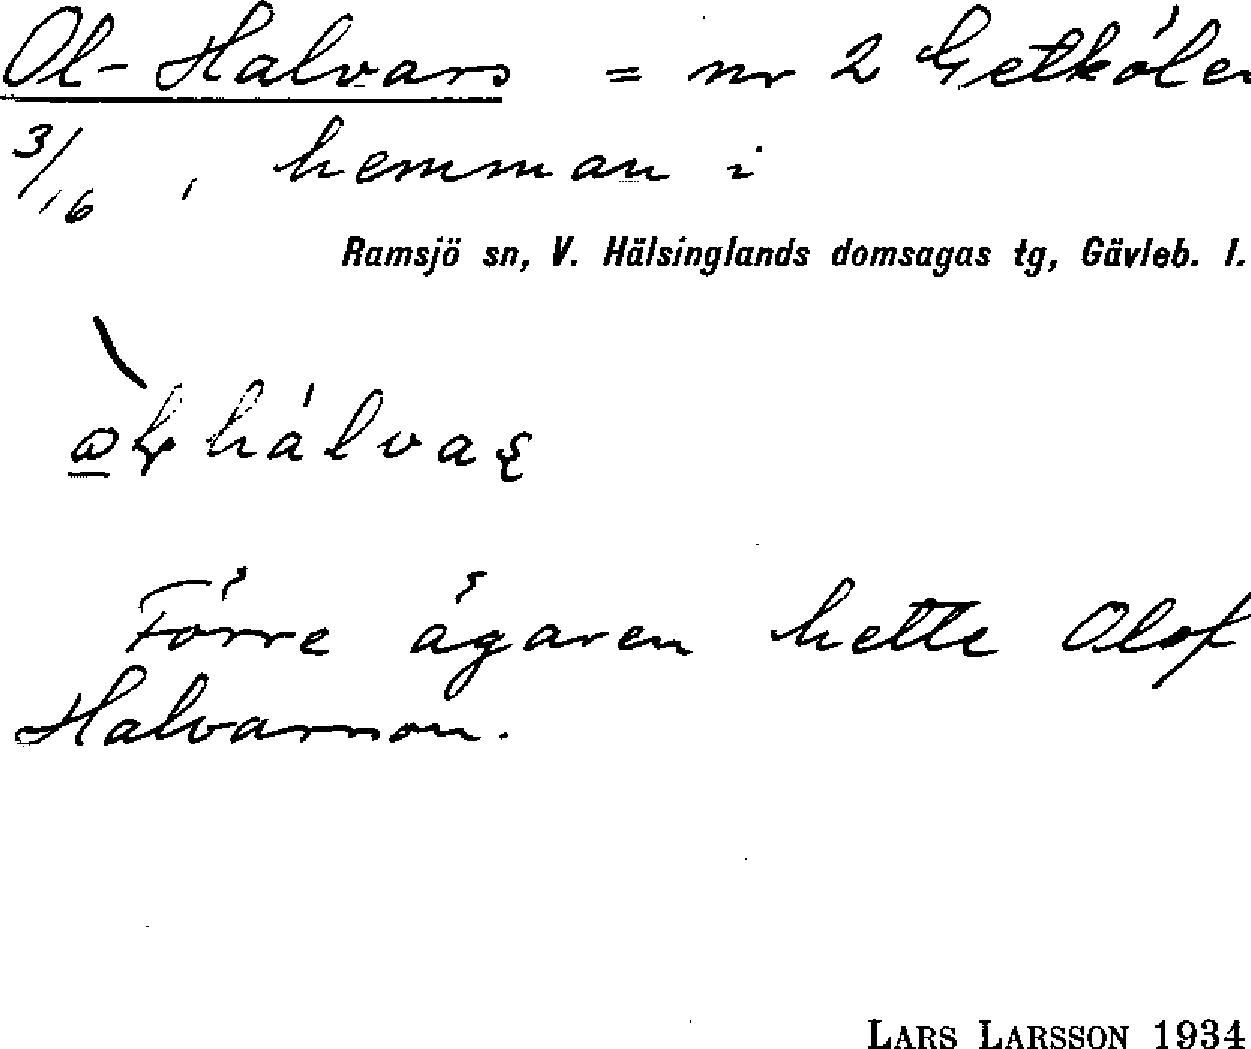 Ol-Halvars = nr 2 Getkölen
3/16, hemman i
Ramsjö sn, V. Hälsinglands domsagas tg, Gävleb. l.
Förre ägaren hette Olof
Halvarsson.
LARS LARSSON 1934